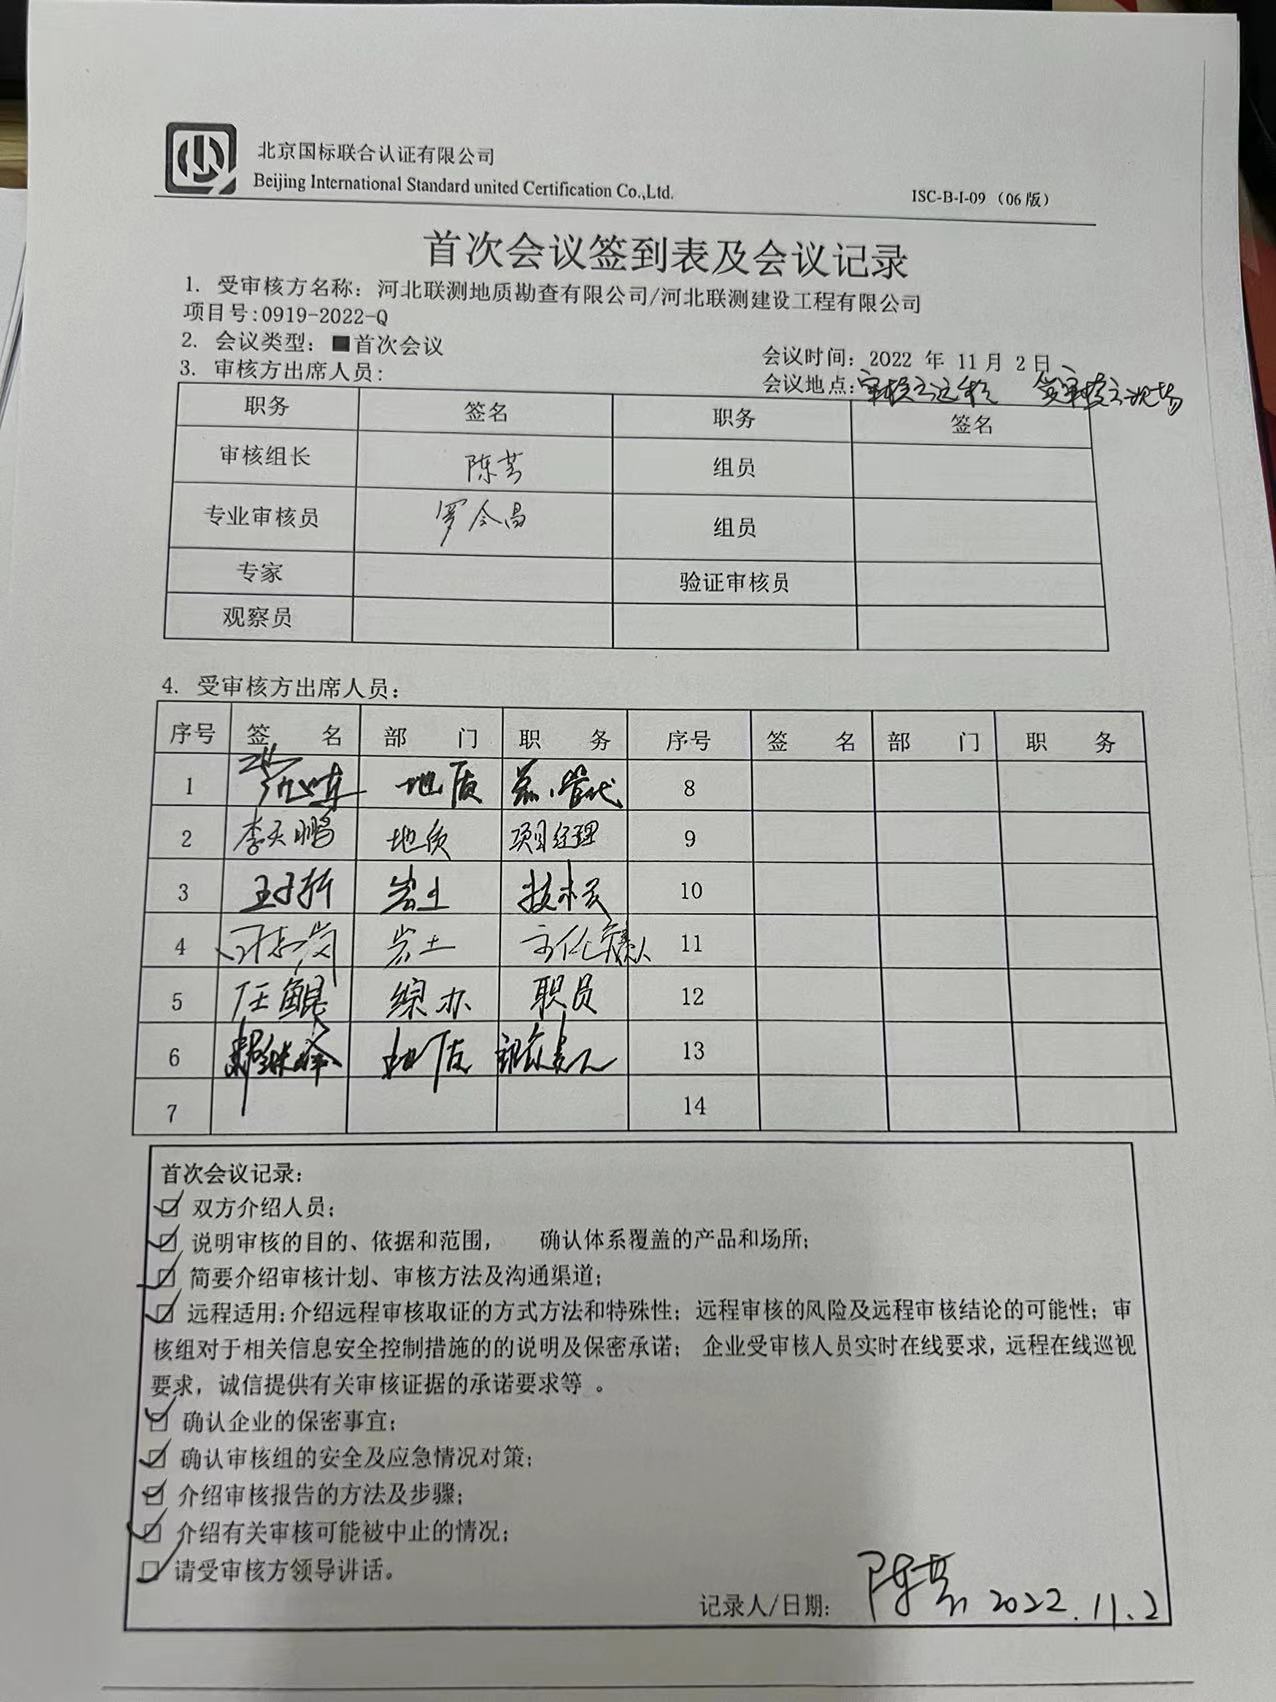 北京国标联合认证有限公司
Beijing International Standard united Certification Co.,Ltd.
ISC-B-I-09（06版）
首次会议签到表及会议记录
1. 受审核方名称：河北联测地质勘查有限公司/河北联测建设工程有限公司
项目号:0919-2022-Q
2. 会议类型：■首次会议 会议时间：2022 年 11 月 2 日
3. 审核方出席人员: 会议地点:审核方远程 受审核方现场
职务 签名 职务 签名
审核组长 陈芳 组员
专业审核员 罗令昌 组员
专家 验证审核员
观察员
4. 受审核方出席人员：
序号 签 名 部 门 职 务 序号 签 名 部 门 职 务
1 地质 总、管代 8
2 李天鹏 地质 项目经理 9
3 岩土 技术员 10
4 岩土 11
5 任鲲 综办 职员 12
6 地质 部门负责人 13
7 14
首次会议记录：
☑ 双方介绍人员；
☑ 说明审核的目的、依据和范围， 确认体系覆盖的产品和场所；
☑ 简要介绍审核计划、审核方法及沟通渠道；
☑ 远程适用：介绍远程审核取证的方式方法和特殊性；远程审核的风险及远程审核结论的可能性；审
核组对于相关信息安全控制措施的的说明及保密承诺； 企业受审核人员实时在线要求，远程在线巡视
要求，诚信提供有关审核证据的承诺要求等 。
☑ 确认企业的保密事宜；
☑ 确认审核组的安全及应急情况对策；
☑ 介绍审核报告的方法及步骤；
☑ 介绍有关审核可能被中止的情况；
☑ 请受审核方领导讲话。
记录人/日期： 陈芳 2022.11.2